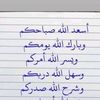 أسعد الله صباحكم
وبارك الله يومكم
ويسر الله أمركم
وسهل الله دربكم
وشرح الله صدركم